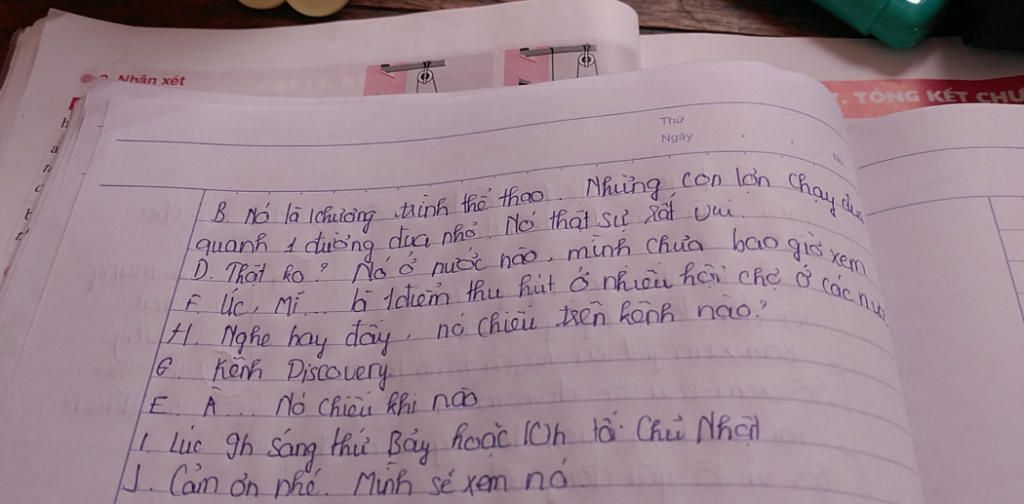 2. Nhận xét
TỔNG KẾT CHƯ
Thứ
Ngày
No
B. Nó là 1 chương trình thể thao. Những con lợn chạy đua
quanh 1 đường đua nhỏ. Nó thật sự rất vui.
D. Thật ko? Nó ở nước nào, mình chưa bao giờ xem
F. Úc, Mĩ... là 1 điểm thu hút ở nhiều hội chợ ở các nư
H. Nghe hay đấy, nó chiếu trên kênh nào?
G. Kênh Discovery
E. À... Nó chiếu khi nào
I. Lúc 9h sáng thứ Bảy hoặc 10h tối Chủ Nhật
J. Cảm ơn nhé. Mình sẽ xem nó